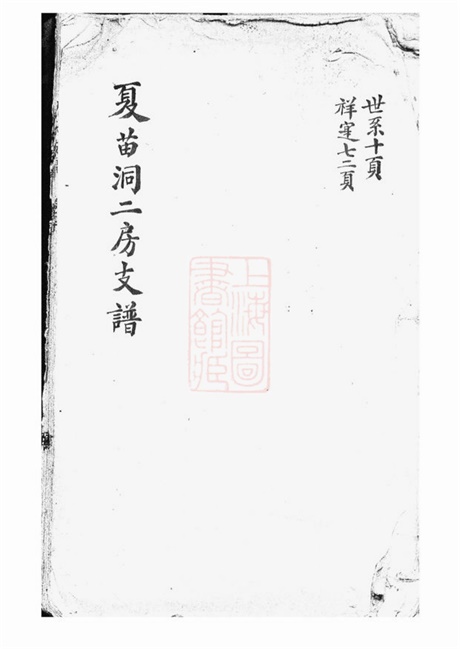 世系十頁
祥寔七二頁
上海圖
書館藏
夏苗洞二房支譜